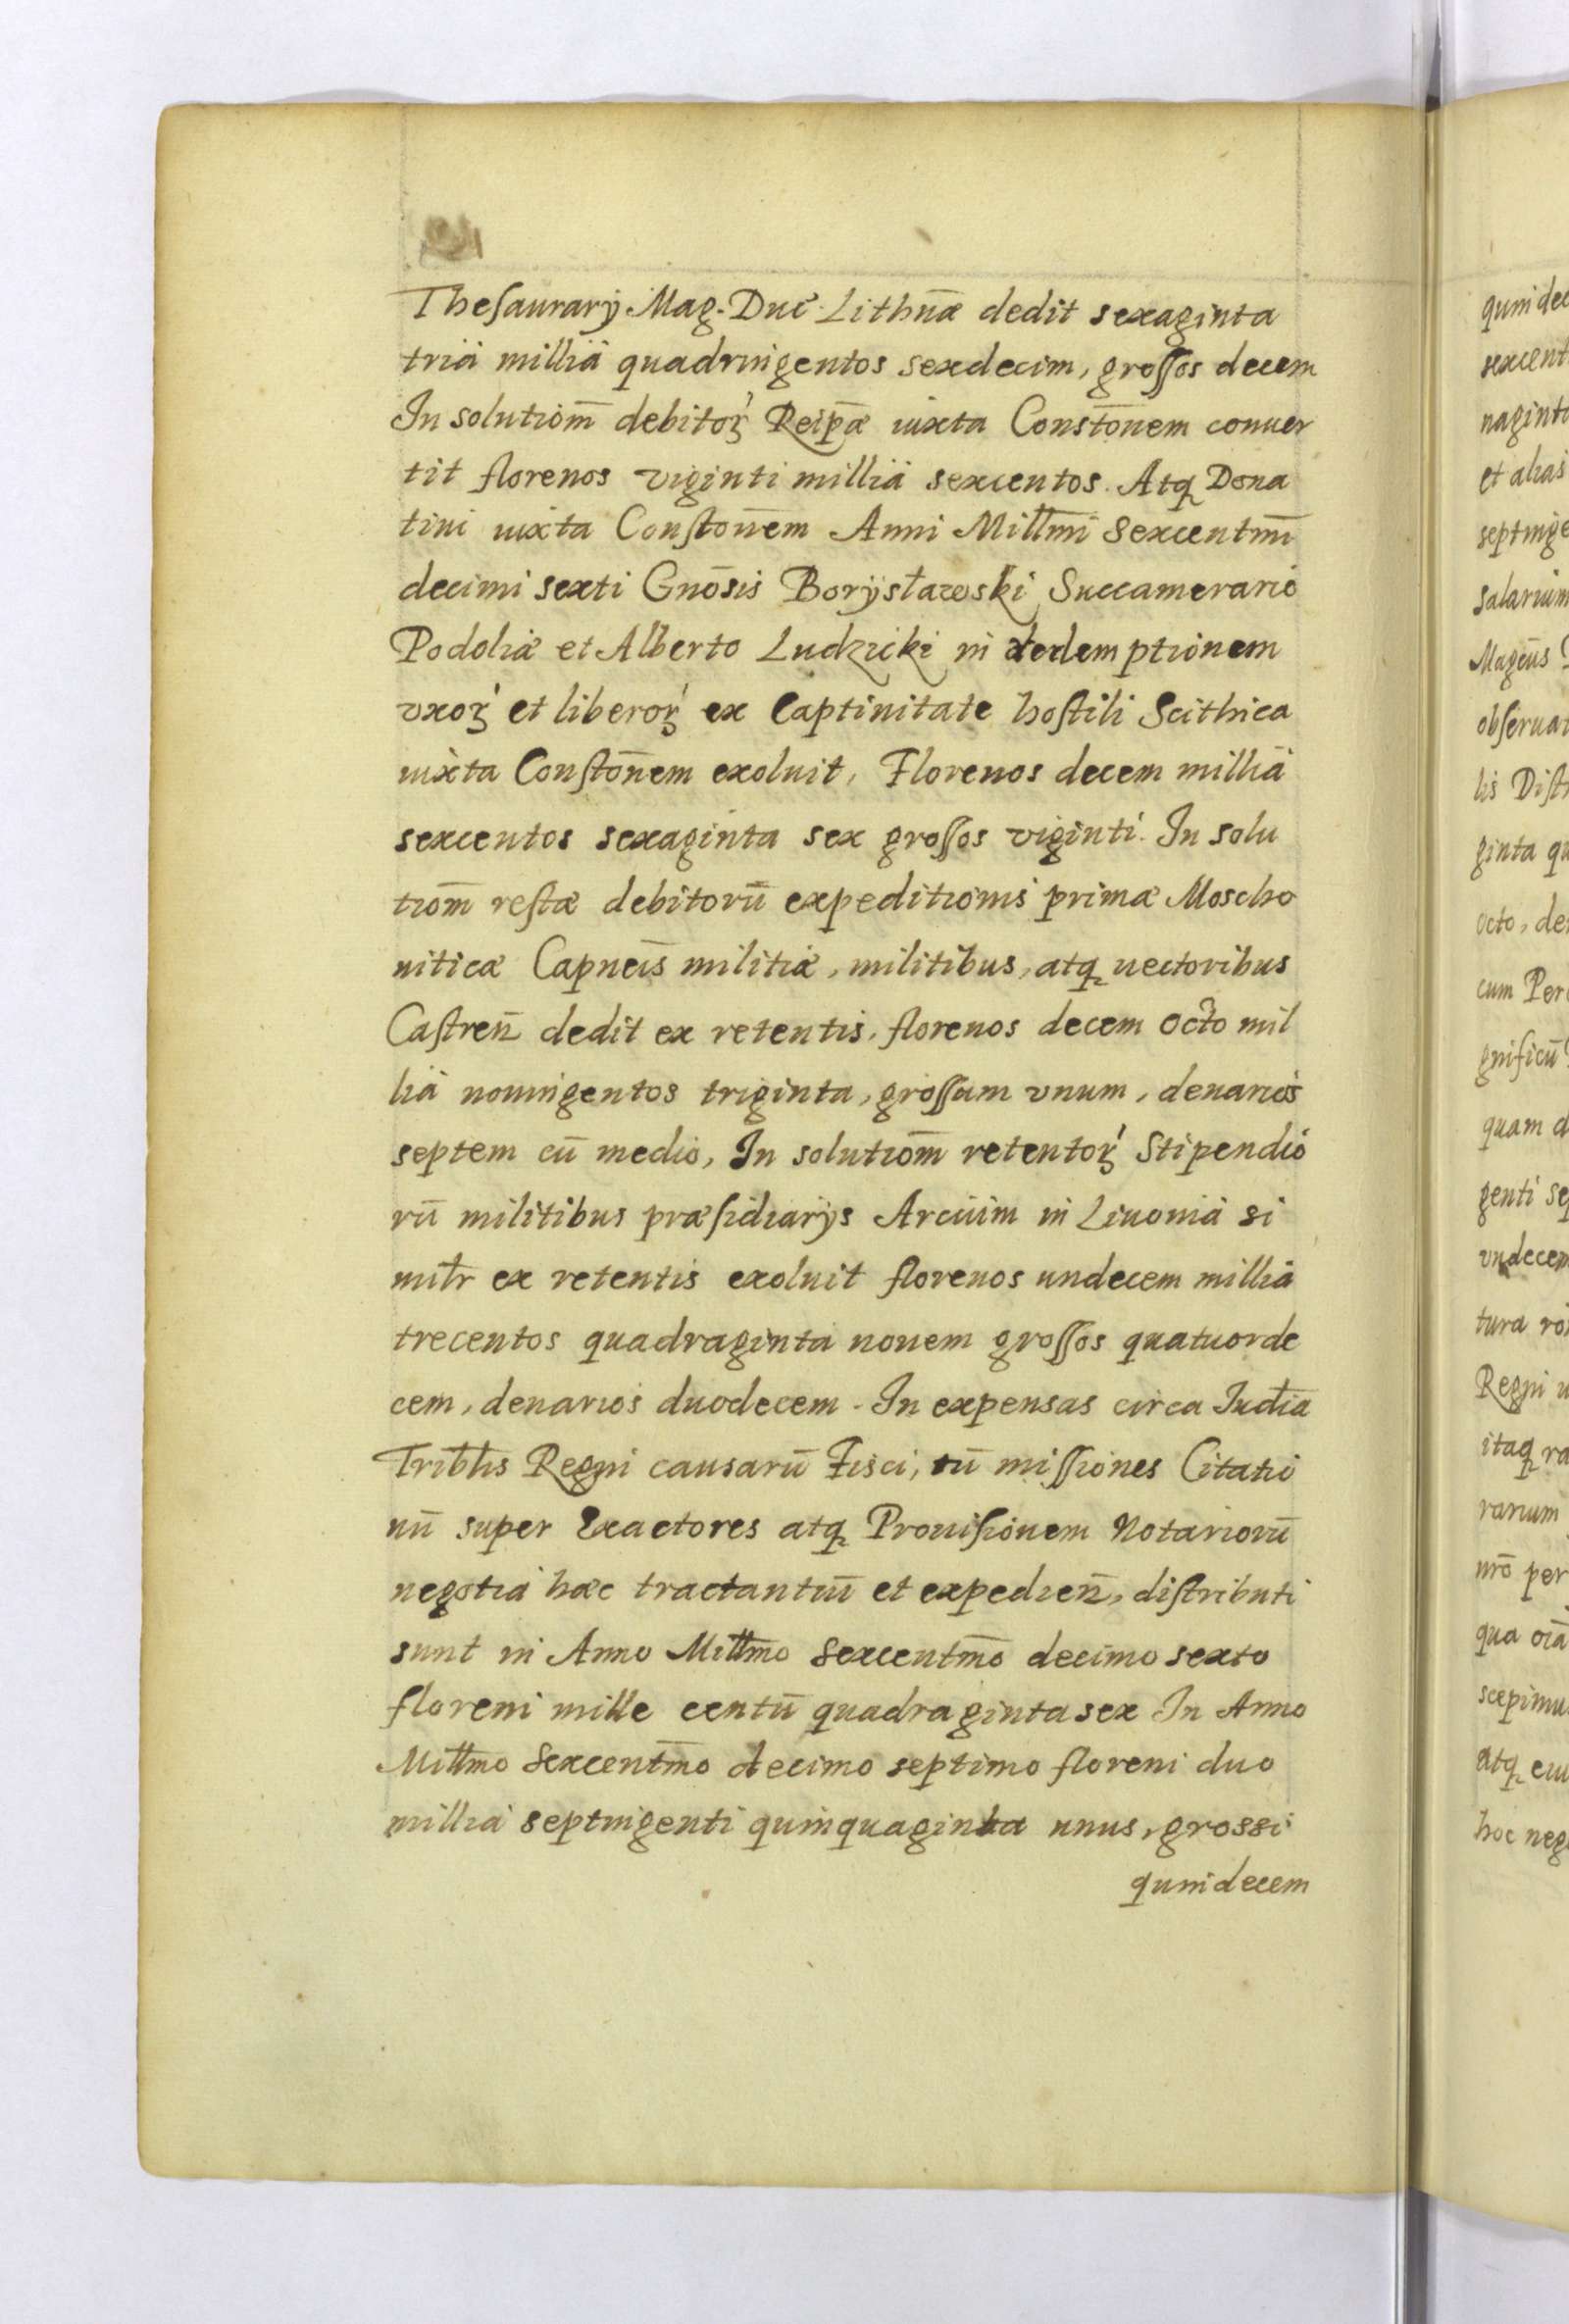 Thesaurarÿ Mag. Duc̄. Lithuǣ dedit sexaginta
tria millia quadringentos sexdecim, grossos decem
In solutiom̄ debitoꝝ Reip̄æ iuxta Constōnem conuer
tit florenos viginti millia sexcentos. Atq̨ Dona
tiui iuxta Constōnem Anni Millm̄i Sexcentm̄i
decimi sexti Gnōsis Borysławski Succamerario
Podoliæ et Alberto Ludzicki in redemptionem
vxoꝝ et liberoꝝ ex Captiuitate hostili Scithica
iuxta Constōnem exoluit, Florenos decem millia
sexcentos sexaginta sex grossos viginti. In solu
tiom̄ restæ debitorū expeditionis primæ Moscho
uiticæ Capnēis militiæ, militibus, atq̨ uectoribus
Castren̄ dedit ex retentis, florenos decem octo mil
lia noningentos triginta, grossum vnum, denarios
septem cū medio, In solutiom̄ retentoꝝ Stipendio
rū militibus præsidiarÿs Arcium in Liuonia si
milr̄ ex retentis exoluit florenos undecem millia
trecentos quadraginta nouem grossos quatuorde
cem, denarios duodecem. In expensas circa Iudīa
Triblīs Regni causarū Fisci, tū missiones Citatio
nū super Exactores atq̨ Prouisionem Notariorū
negotia hæc tractantiū et expedien̄, distributi
sunt in Anno Millm̄o Sexcentm̄o decimo sexto
floreni mille centū quadraginta sex In Anno
Millm̄o Sexcentm̄o decimo septimo floreni duo
millia septingenti quinquaginta unus, grossi
quindecem